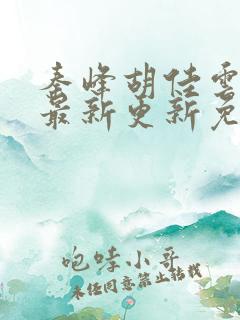 秦峰胡佳雲
最新更新免
咆哮小哥
未经同意禁止转载